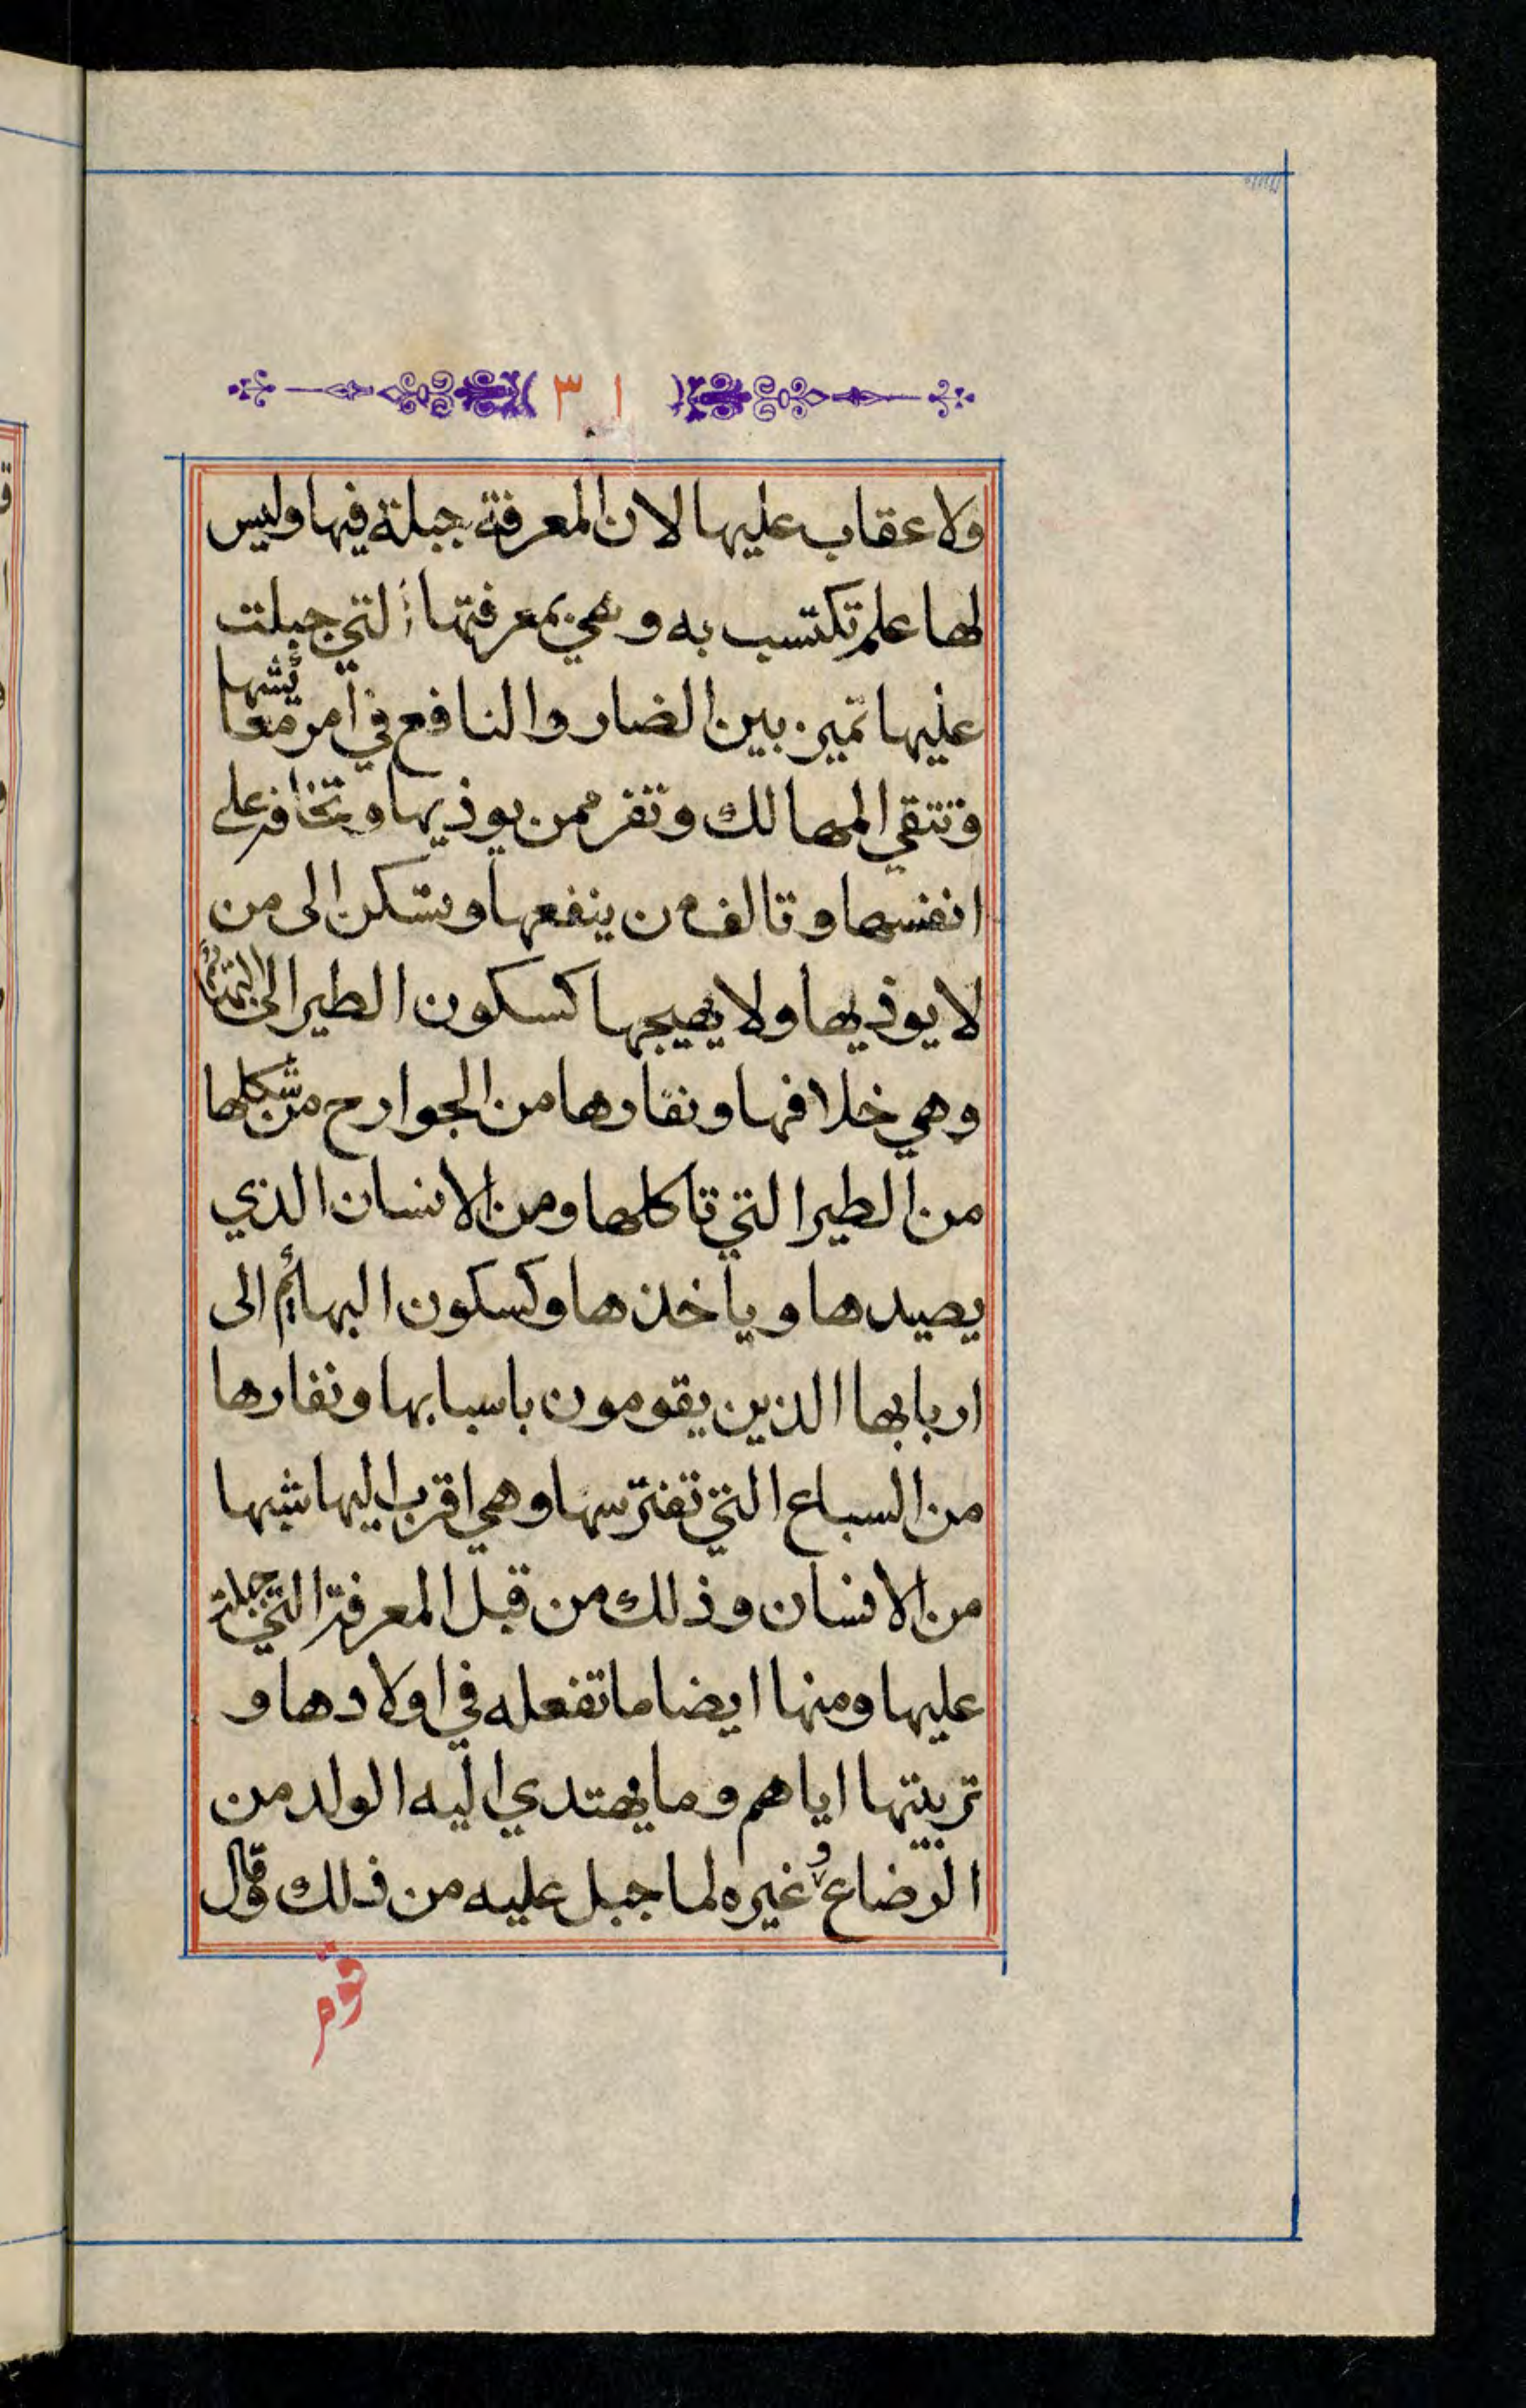 ٣١
ولا عقاب عليها لان المعرفة جبلة فيها وليس
لها علم تكتسب به وهي بمعرفتها التي جبلت
عليها تميز بين الضار والنافع في أمر معايشها
وتتقي المهالك وتفر ممن يوذيها وتخافه على
انفسها وتالف من ينفعها وتسكن الى من
لا يوذيها ولا يهيجها كسكون الطير الى
وهي خلافها ونفارها من الجوارح من شكلها
من الطير التي تاكلها ومن الانسان الذي
يصيدها وياخذها وكسكون البهائم الى
اربابها الذين يقومون باسبابها ونفارها
من السباع التي تفترسها وهي اقرب اليها شبها
من الانسان وذلك من قبل المعرفة التي جبلت
عليها ومنها ايضا ما تفعله في اولادها و
تربيتها اياهم وما يهتدي اليه الولد من
الرضاع وغيره لما جبل عليه من ذلك وقال
قوم